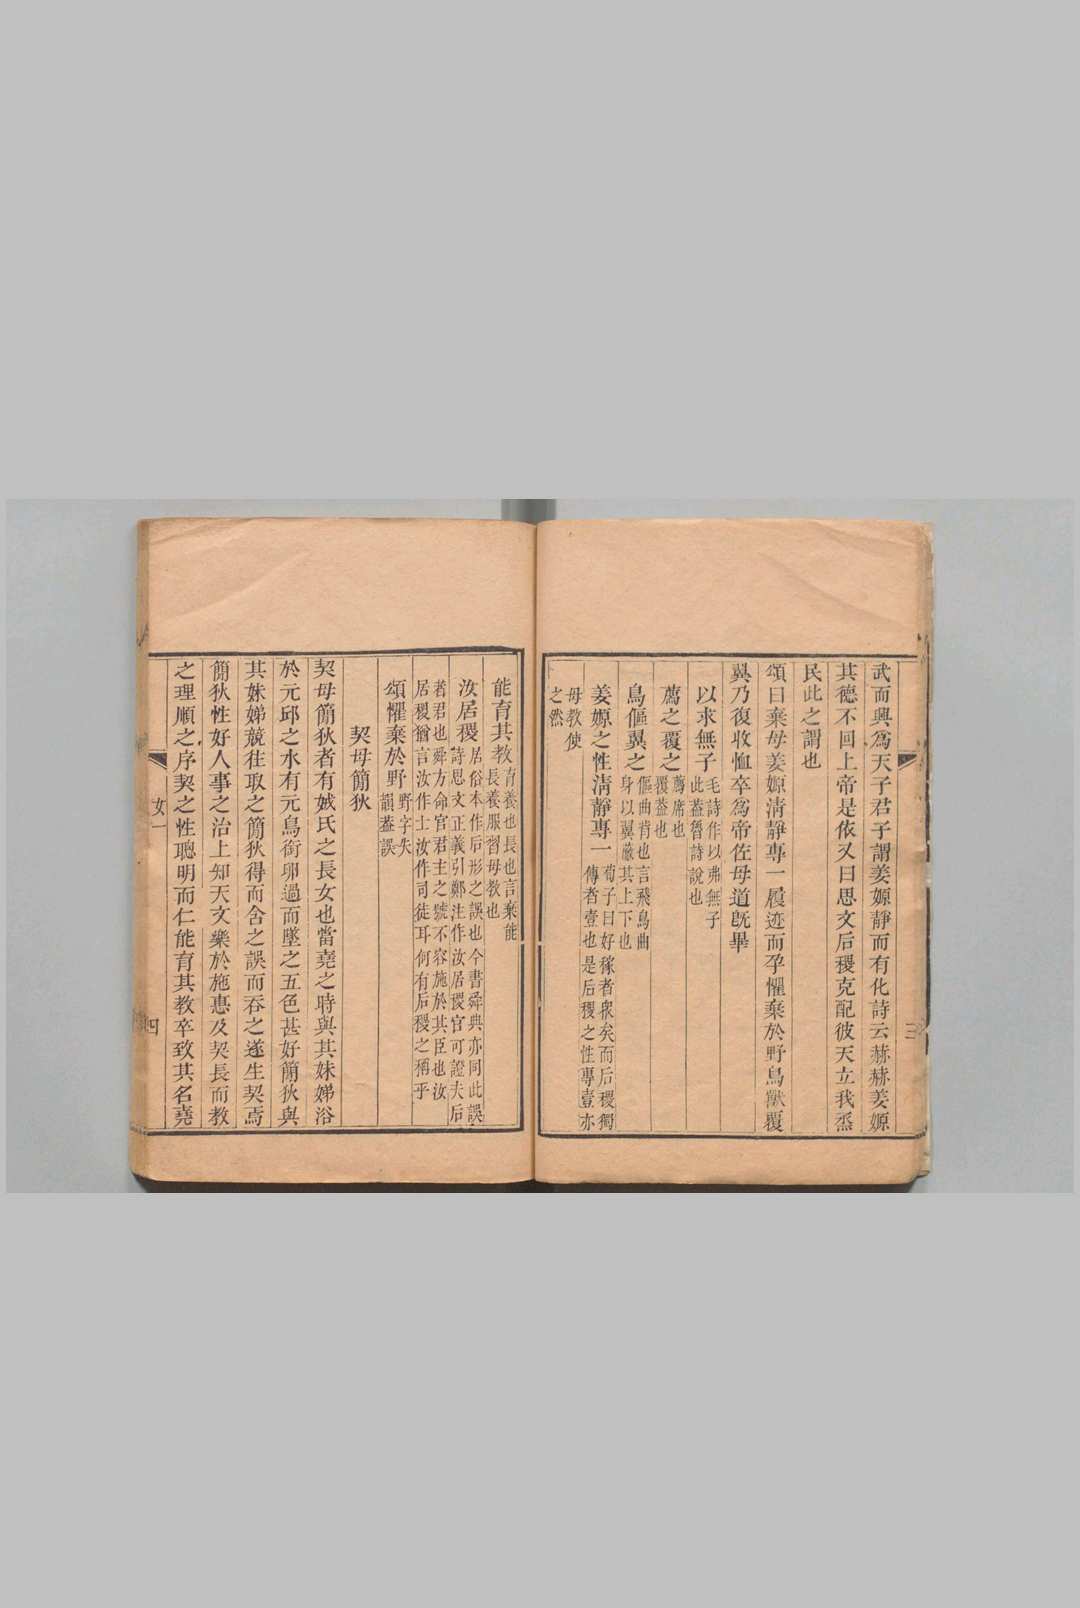 武而興爲天子君子謂姜嫄靜而有化詩云赫赫姜嫄
其德不回上帝是依又曰思文后稷克配彼天立我烝
民此之謂也
頌曰棄母姜嫄淸靜專一履迹而孕懼棄於野鳥獸覆
翼乃復收恤卒爲帝佐母道旣畢
以求無子
毛詩作以弗無子
此葢魯詩說也
薦之覆之
薦席也
覆葢也
鳥傴翼之
傴曲背也言飛鳥曲
身以翼蔽其上下也
姜嫄之性淸靜專一
荀子曰好稼者衆矣而后稷獨
傳者壹也是后稷之性專壹亦
母教使
之然
能育其教
育養也長也言棄能
長養服習母教也
汝居稷
居俗本作后形之誤也今書舜典亦同此誤
詩思文正義引鄭注作汝居稷官可證夫后
者君也舜方命官君主之號不容施於其臣也汝
居稷猶言汝作士汝作司徒耳何有后稷之稱乎
頌懼棄於野
野字失
韻葢誤
契母簡狄
契母簡狄者有娀氏之長女也當堯之時與其妹娣浴
於元邱之水有元鳥銜卵過而墜之五色甚好簡狄與
其妹娣競往取之簡狄得而含之誤而吞之遂生契焉
簡狄性好人事之治上知天文樂於施惠及契長而教
之理順之序契之性聰明而仁能育其教卒致其名堯
女一
四
三